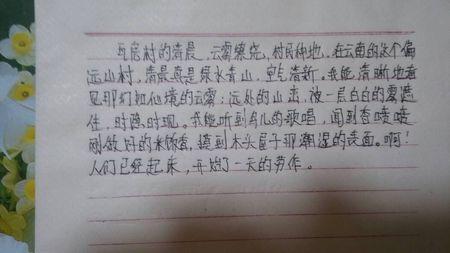 瓦房村的清晨，云雾缭绕，村民种地，在云南的这个偏
远山村，清晨真是绿水青山，空气清新，我能清晰地看
见那幻如仙境的云雾；远处的山峦，被一层白白的雾遮
住，时隐时现。我能听到鸟儿的歌唱，闻到香喷喷
刚做好的米饭香，摸到木头屋子那潮湿的表面。啊！
人们已经起来，开始了一天的劳作。